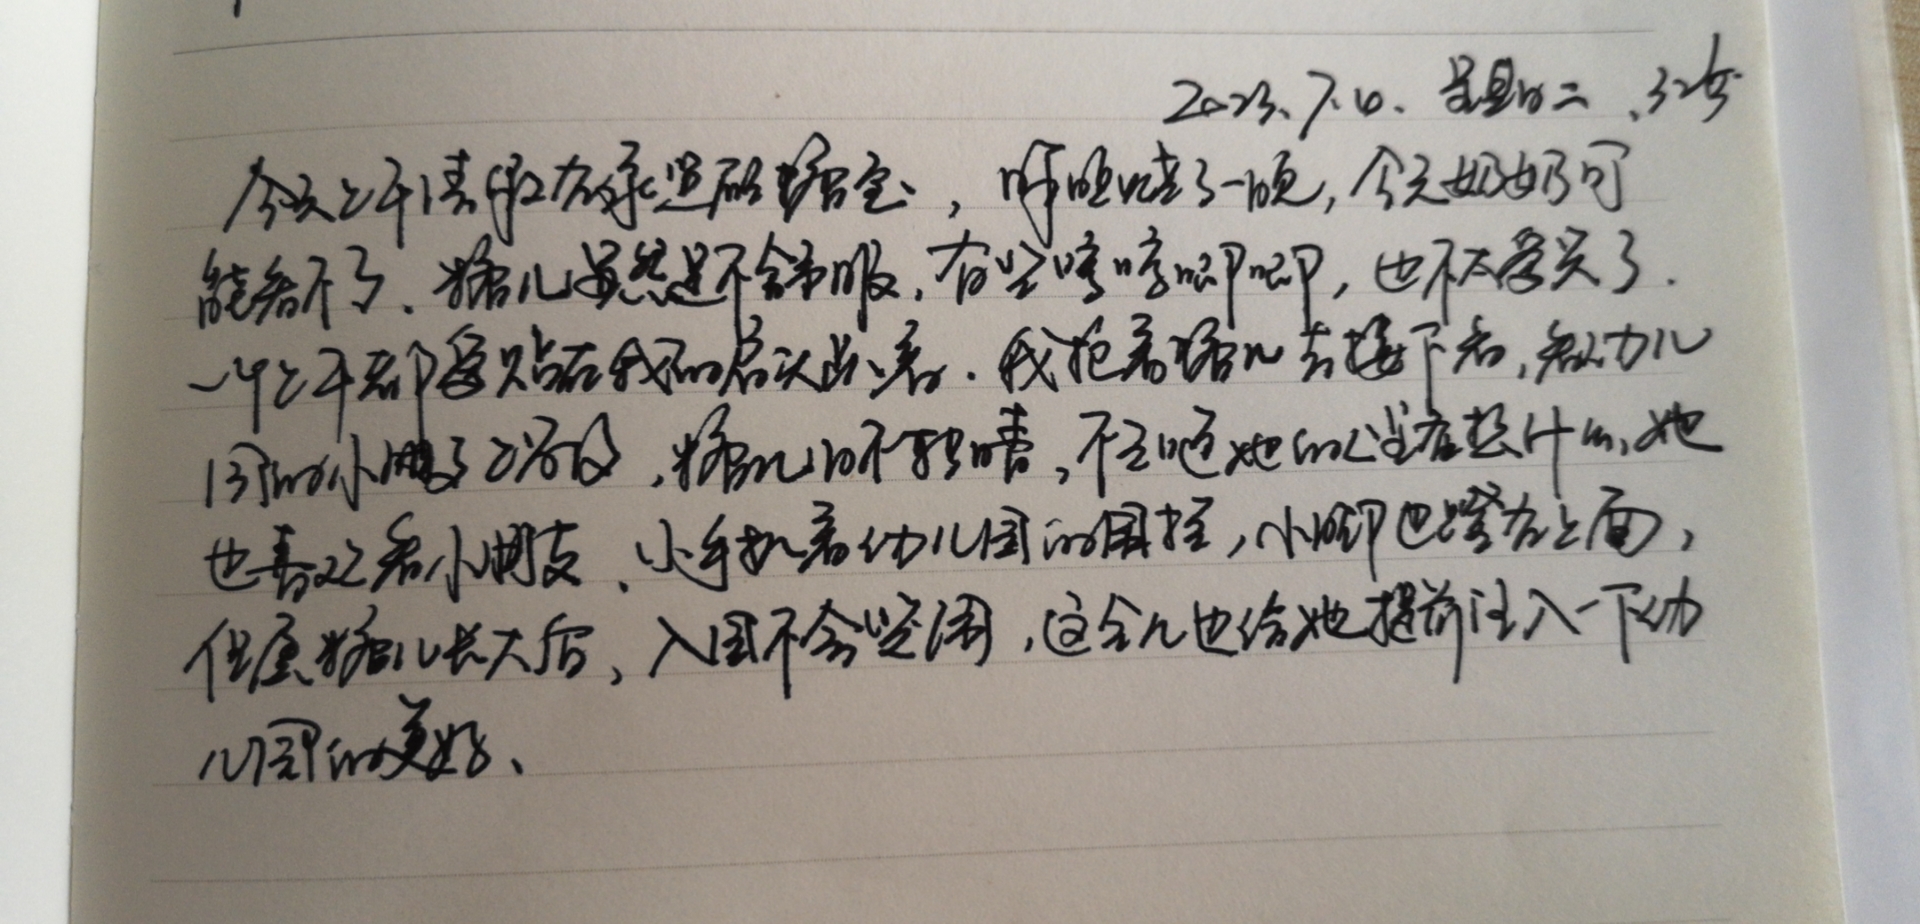 2023.7.4. 星期二
今天上午请假在家照顾糖宝, 昨晚吐了一顿, 今天奶奶可
能看不了. 糖儿虽然是不舒服, 有些哼哼唧唧, 也不太爱笑了.
一个上午都要贴在我的肩头. 我抱着糖儿去楼下看, 看幼儿
园的小朋友, 糖儿目不转睛, 不知道她的心里在想什么, 她
也喜欢看小朋友. 小手扒着幼儿园的围栏, 小脚也蹬在上面,
但愿糖儿长大后, 入园不会哭闹, 这会儿也给她提前注入一下幼
儿园的美好.